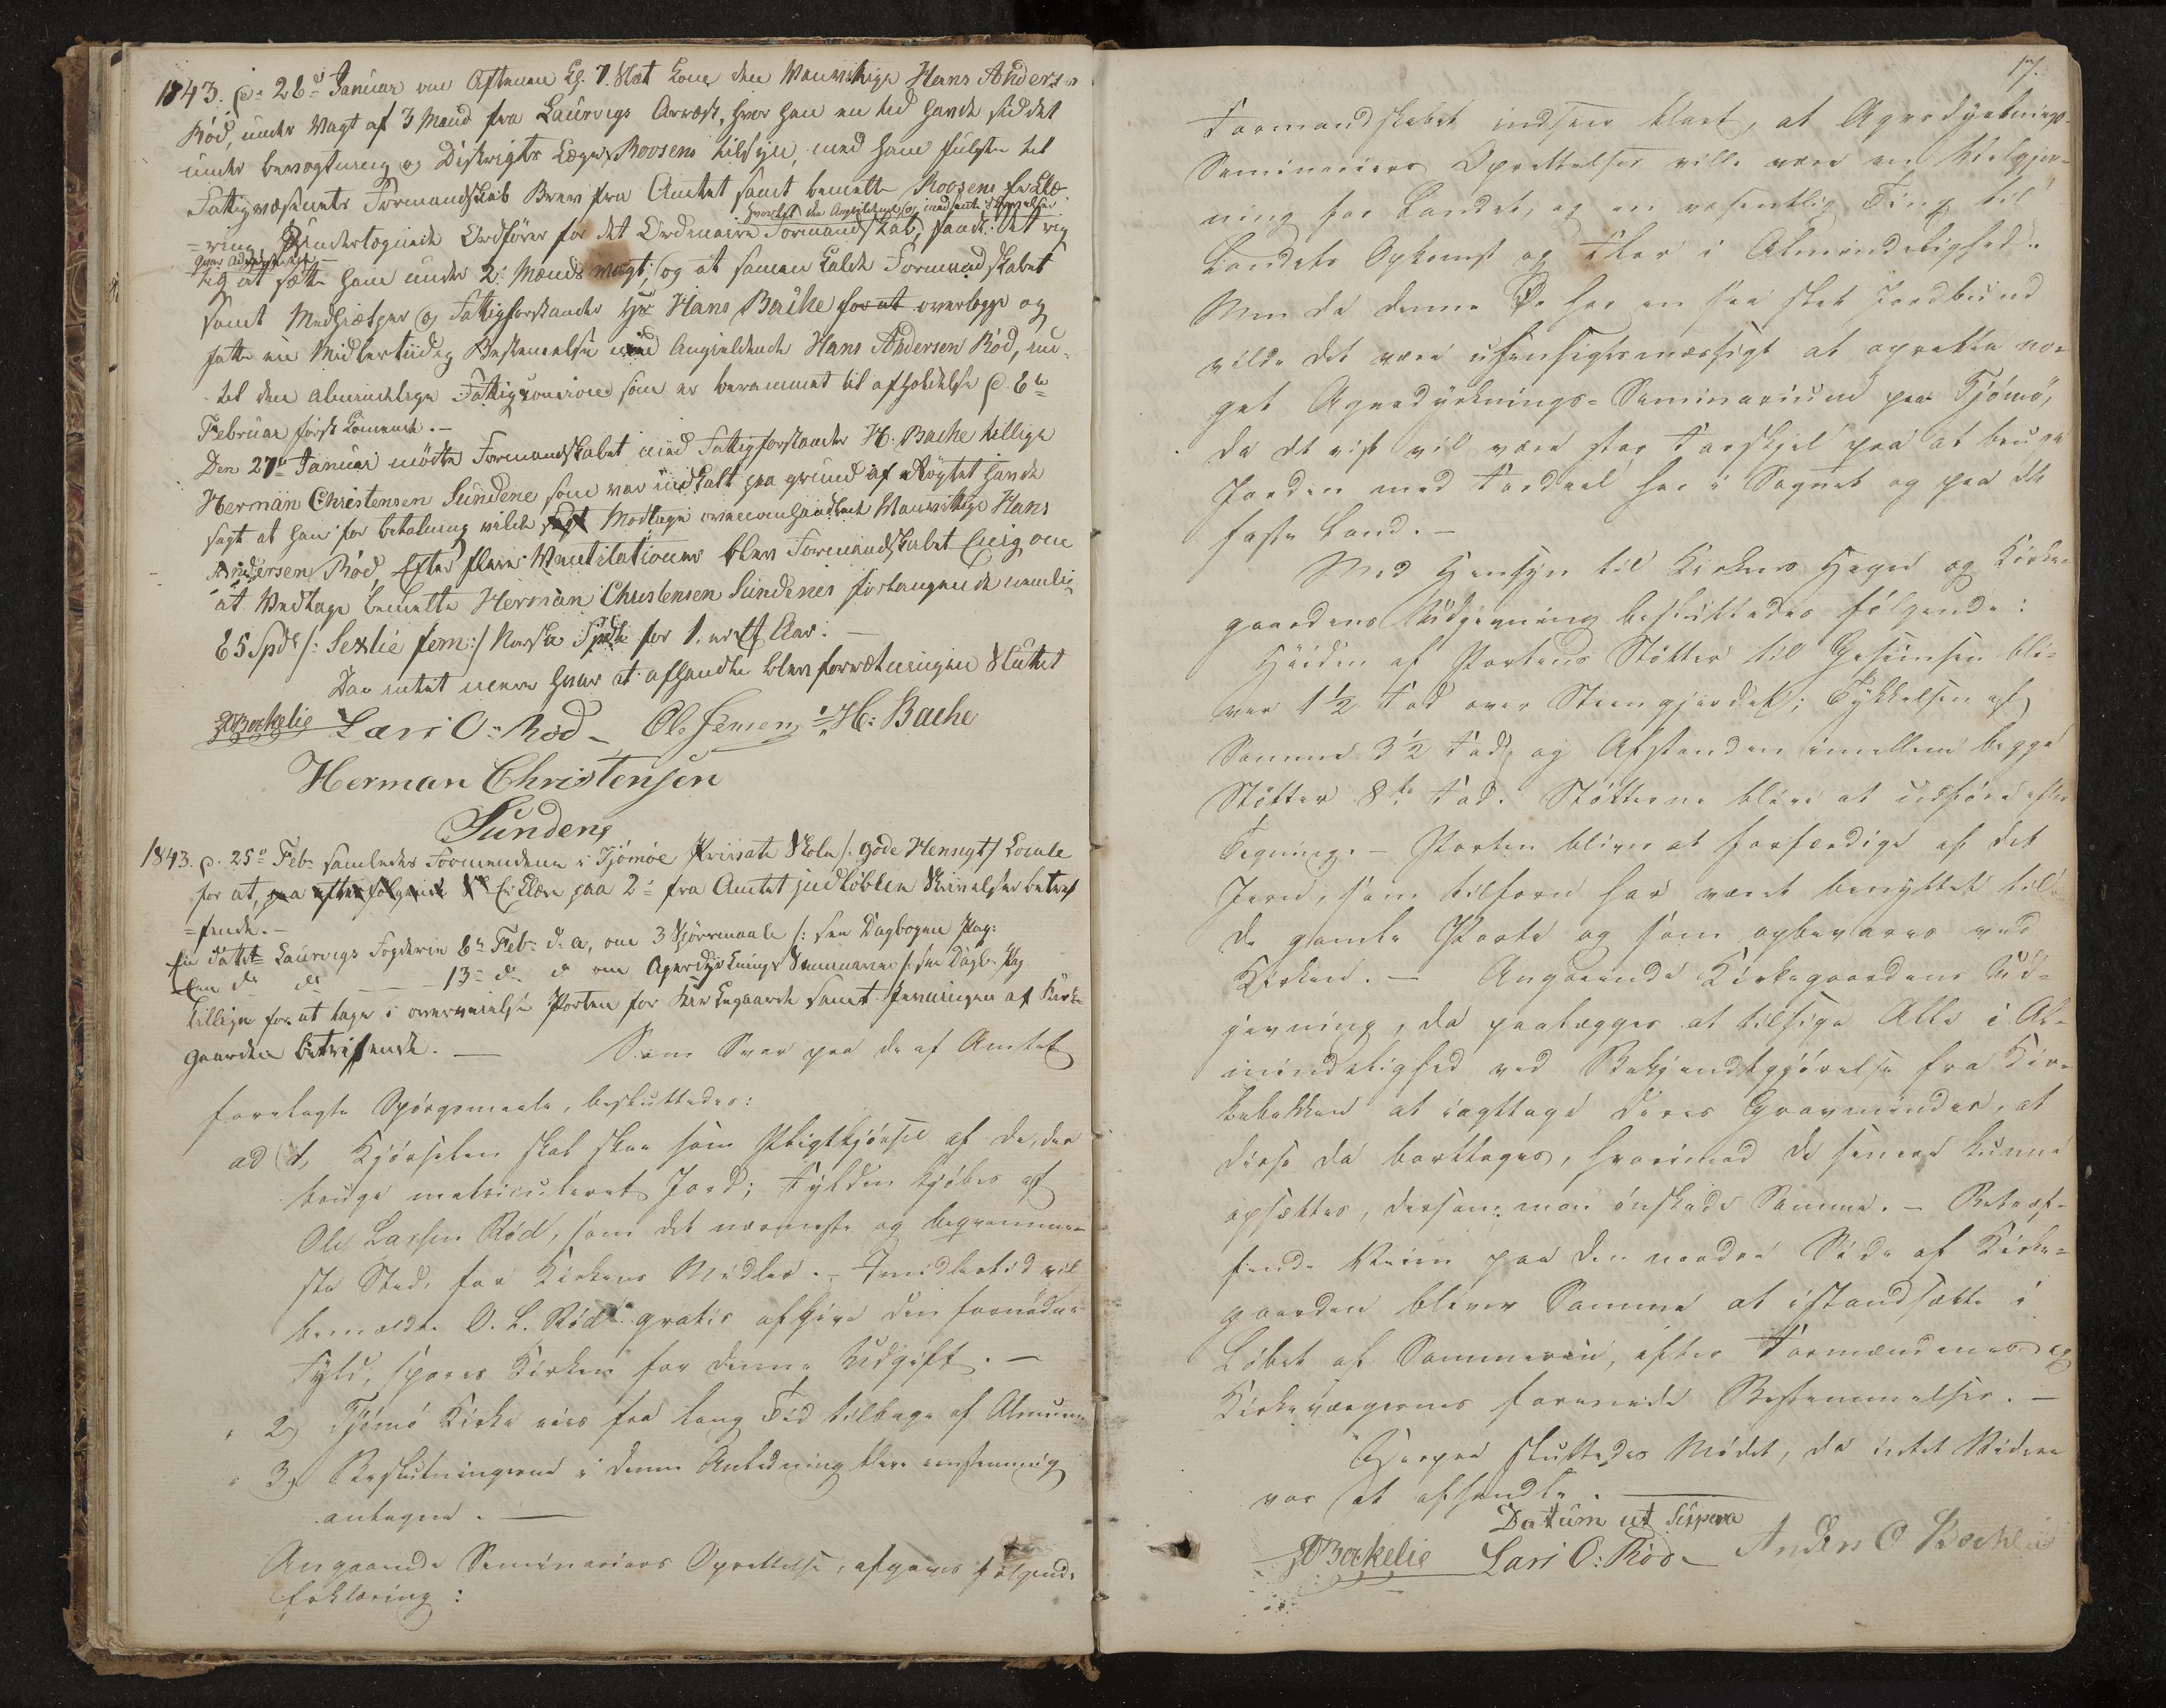 1843. d. 26de Januar om Aftenen Kl. 7 Slet kom den Vanvittige Hans Anders
Röd, under Vagt af 3 Mand fra Laurvigs Arræst, hvor han en tid havde siddet
under bevogtning og Distrigts Læge Roosens tilsyn, med ham fulgte til
Fattigvæsenets Formandskab Brev fra Amtet samt bemelte Roosens Erklæ-
=ring, Undertegnede Ordförer for det Ordinaire Formandskab, fandt det rig
tig at sætte ham under 2 Mands vagt, og at samen kalde Formandskabet
samt Medhielper og Fattigforstander Hr Hans Bache for at overlegge og
fatte en Midlertiidig Bestemelse med Angieldende Hans Andersen Röd, ind-
til den almindelige Fattigcomision som er berammet til afholdelse d. 6te
Februar först komende. -
Den 27de Januar mödte Formandskabet med Fattigforstander H. Bache tillige
Herman Christensen Sundene som var indkalt paa grund af Rögtet havde
sagt at han for betalning vilde Modtage ovenomhandlede Vanvittige Hans
Andersen Röd, Efter flere Ventilationer blev Formandskabet Enig om
at Vedtage bemelte Herman Christensen Sundenes forlangende nemlig
65 Spd /: Sextie fem :/ Norske Spdlr for 1. et Aar. -
Da intet mere hver at afhandle blev forretningen Sluttet
Boekelie Lars O: Röd - Ole Jensen H: Bache
Herman Christensen
Sundene
1843. d. 25de Feb. samledes Formendene i Tjömöe Private Skole /: gode Hensigt :/ Locale
for at, paa efterfölgende Erklære paa 2de fra Amtet indlöbne Skrivelser betref
=fende. -
En datet Laurvigs Fogderie 6te Feb. d. a, om 3 Spörsmaale /: see Dagbogen Pag:
Een do do - 13de do do om Agerdyrknings Seminarier /: see Dagb. Pag
tillige for at tage i overveielse Porten for Kirkegaarde samt Jevningen af Kirke
gaarden betrefende. - Som Svar paa de af Amtet
forelagte Spörgsmaale, besluttedes:
ad 1, Kjörselen skal skee som Pligtkjörsel af de, der
bruge matriculeret Jord; Fylden kjöbes af
Ole Larsen Röd, som det nærmeste og beqvemme-
ste Sted, for Kirkens Midler. - Imidlertid vil
bemeldte O. L. Röd gratis afgive den fornödne
Fyld, spares Kirken for denne Udgift. -
" 2, Tjömö Kirke eies fra lang Tid tilbage af Almuen
" 3, Beslutningerne i denne Anledning bleve eenstemmig
antagne. -
Angaaende Seminariers Oprettelse, afgaves fölgende
Erklæring:
17.
Formandskabet indseer klart, at Agerdyrknings-
Seminariers Oprettelse ville være en Velgjer-
ning for Landet, og en væsentlig Ting til
Landets Opkomst og Flor i Almindelighed.
Men da denne Öe har en saa slet Jordbund
vilde det være uhensigtsmæssigt at oprette no-
get Agerdyrknings-Seminarium paa Tjömö,
da det vist vil være stor Forskjel paa at bruge
Jorden med Fordeel her i Sognet og paa det
faste Land. -
Med Hensyn til Kirkens Hegn og Kirke-
gaardens Udjevning besluttedes fölgende:
Höiden af Portens Stötter til Gesimsen bli-
ver 1 1/2 Fod over Steengjerdet; Tykkelsen af
Samme 3 1/2 Fod, og Afstanden imellem begge
Stötter 8te Fod. Stötterne blive at udföre efter
Tegning. - Porten bliver at forfærdige af det
Jern, som tilforn har været benyttet til
de gamle Porte og som opbevares ved
Kirken. - Angaaende Kirkegaardens Ud-
jevning, da paalægges at tilsige Alle i Al-
mindelighed ved Bekjendtgjörelse fra Kir-
kebakken at iagttage deres Gravminder, at
disse da borttages, hvorimod de senere kunne
opsættes, dersom man önskede Samme. - Betræf-
fende Veien paa den nordre Side af Kirke-
gaarden bliver Samme at istandsætte i
Löbet af Sommeren, efter Formændenes og
Kirkeværgernes forenede Bestemmelser. -
Herpaa sluttedes Mödet, da intet Videre
var at afhandle. -
Datum ut Supra
Boekelie Lars O: Röd - Anders O Boekelie